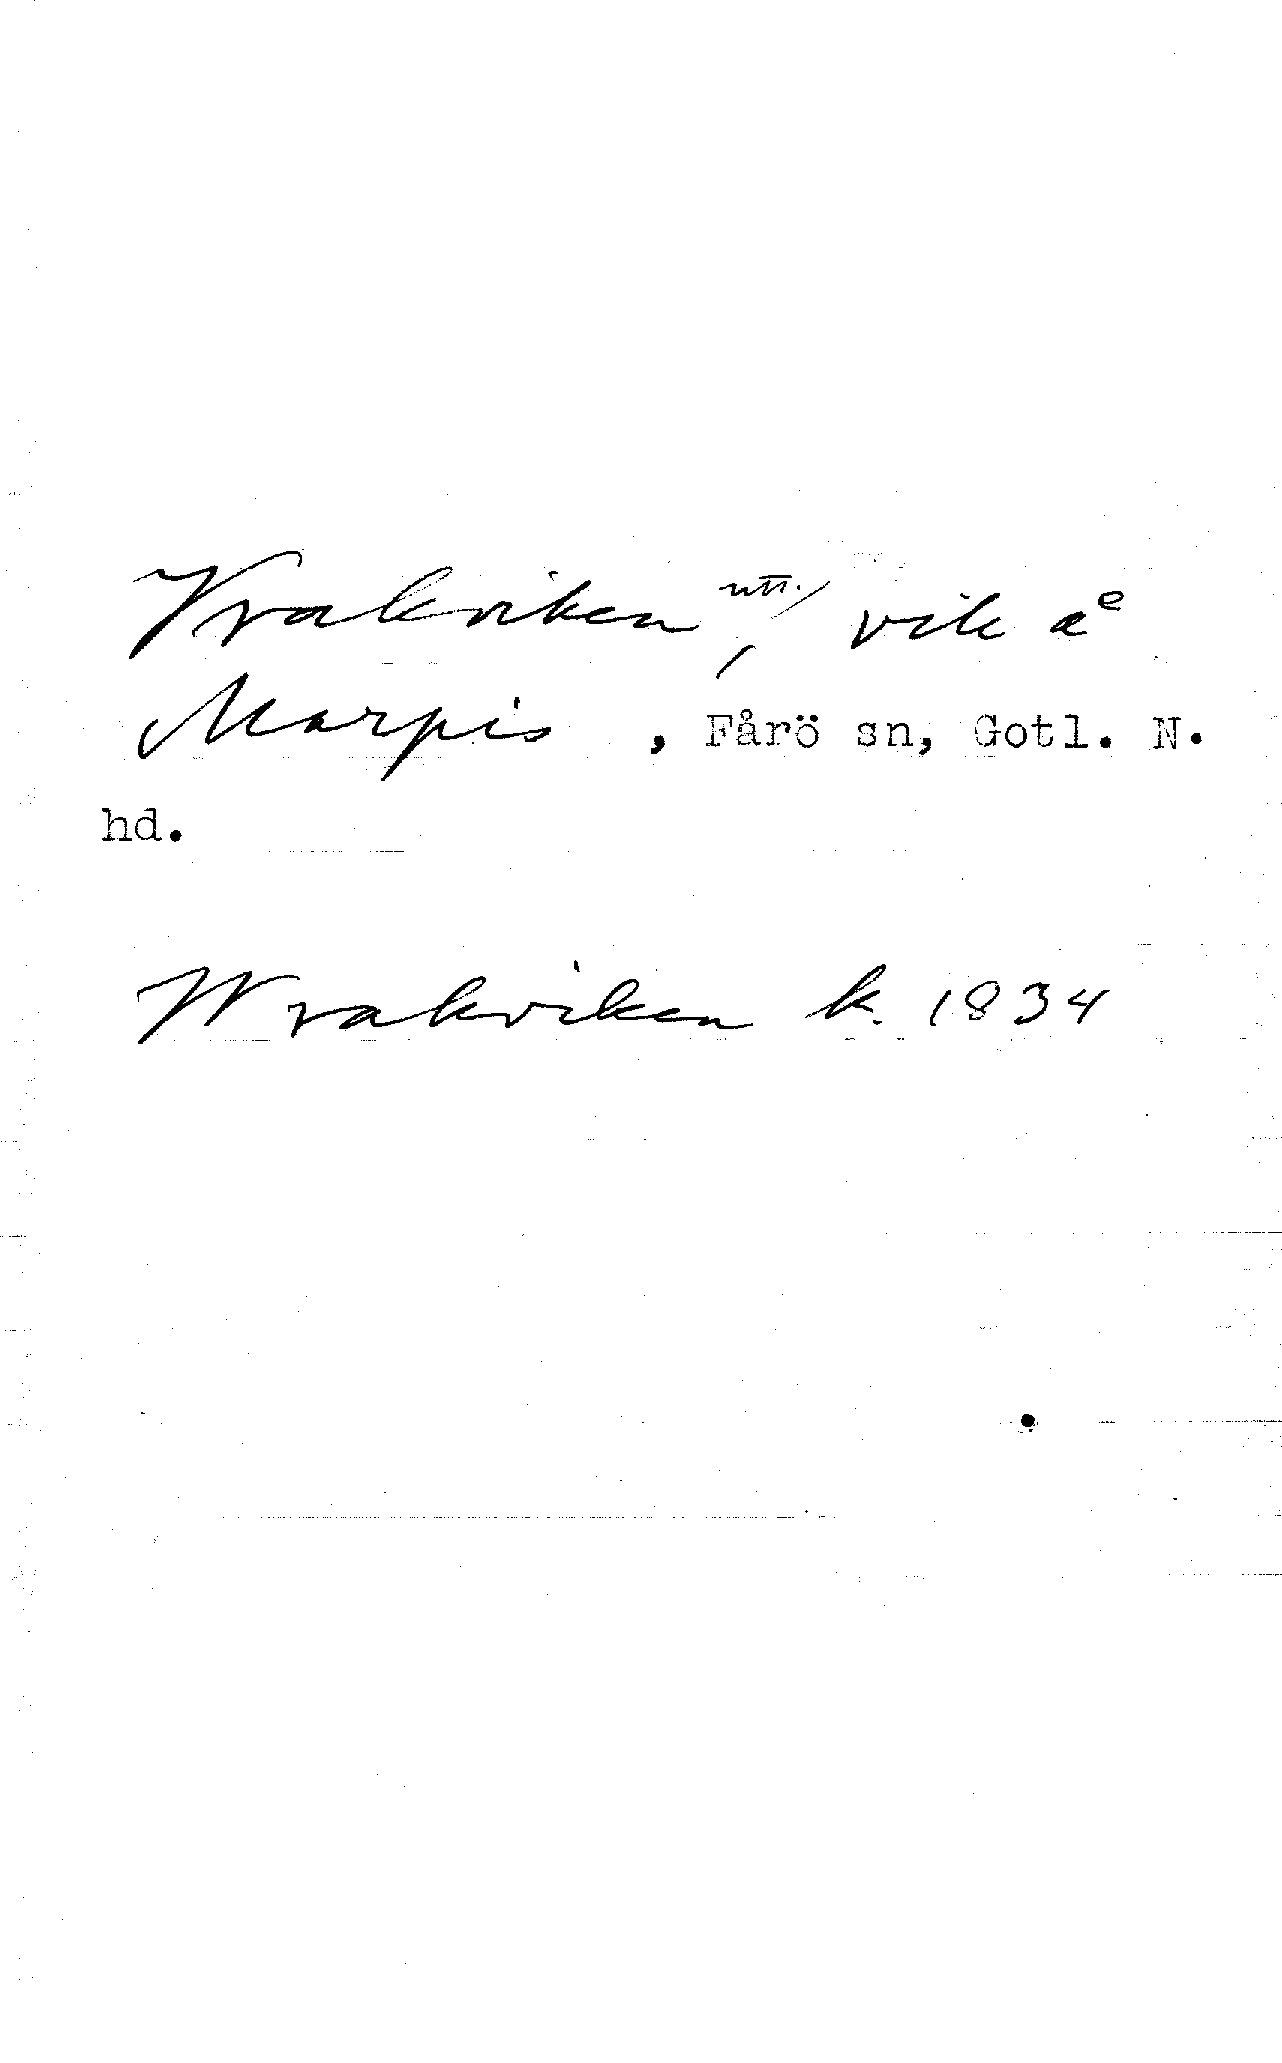 Vrakviken utt./, vik å
Marpis, Fårö sn, Gotl. N.
hd.
Wrakviken k. 1834